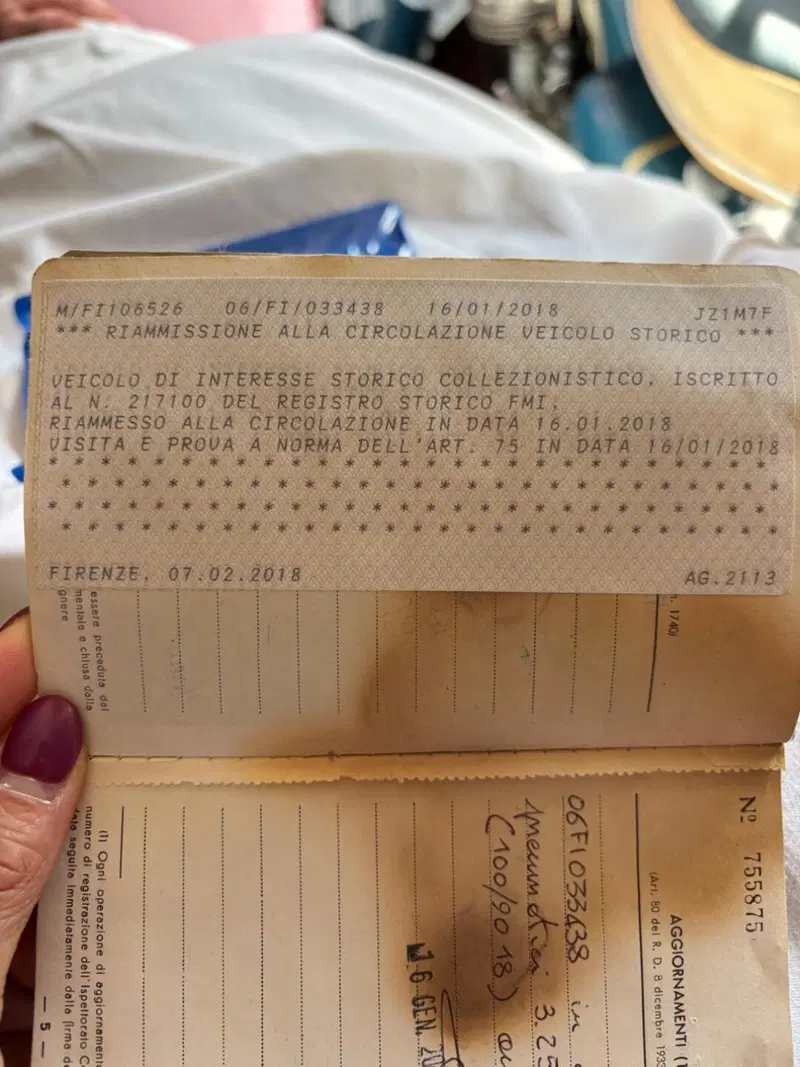 M/FI106526 06/FI/033438 16/01/2018 JZ1M7F
*** RIAMMISSIONE ALLA CIRCOLAZIONE VEICOLO STORICO ***
VEICOLO DI INTERESSE STORICO COLLEZIONISTICO, ISCRITTO
AL N. 217100 DEL REGISTRO STORICO FMI,
RIAMMESSO ALLA CIRCOLAZIONE IN DATA 16.01.2018
VISITA E PROVA A NORMA DELL'ART. 75 IN DATA 16/01/2018
* * * * * * * * * * * * * * * * * * * * * * * * * * * *
* * * * * * * * * * * * * * * * * * * * * * * * * * *
* * * * * * * * * * * * * * * * * * * * * * * * * * * *
* * * * * * * * * * * * * * * * * * * * * * * * * * *
FIRENZE, 07.02.2018 AG.2113
n. 1740)
essere preceduta dal
mentale e chiusa dalla
gnere
Nº 755875
AGGIORNAMENTI (1
(Art. 80 del R. D. 8 dicembre 1933
06FI033438 in
pneumatici 3.25
(100/90 18)
16 GEN. 20
(1) Ogni operazione di aggiornamento
numero di registrazione dell'Ispettorato C
seguita immediatamente dalla firma de
— 5 —